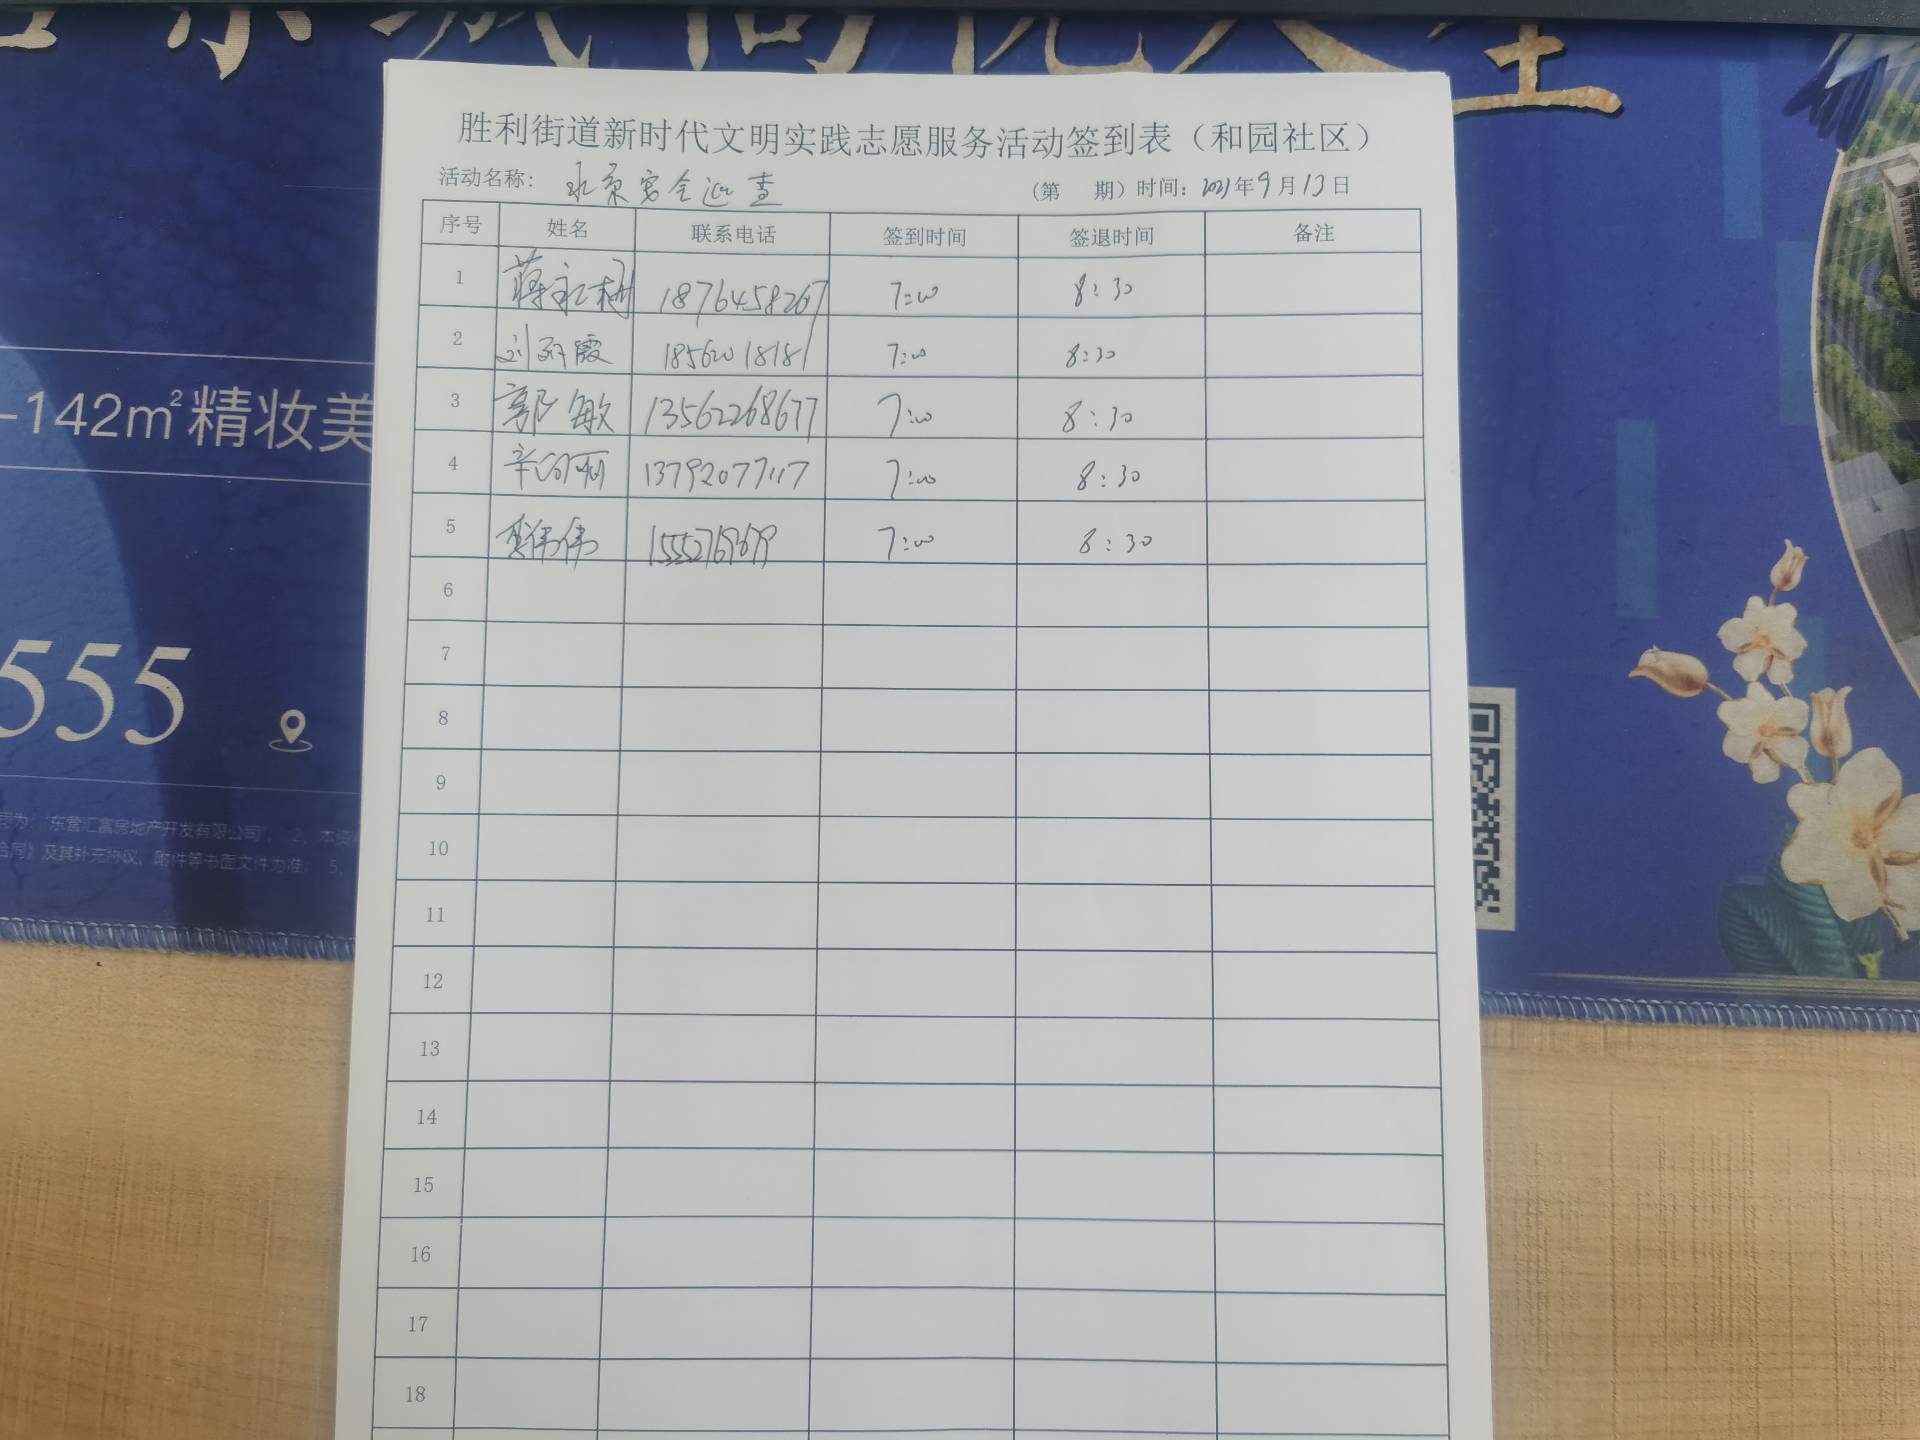 -142m²精妆美
555
东营汇富房地产开发有限公司"; 2、本资
合同》及其补充协议、附件等书面文件为准; 5、
胜利街道新时代文明实践志愿服务活动签到表（和园社区）
活动名称: 水系安全巡查 （第 期）时间: 2021年9月13日
序号 姓名 联系电话 签到时间 签退时间 备注
1 蒋 1876458267 7:00 8:30
2 刘 霞 18562018181 7:00 8:30
3 郭敏 13562268677 7:00 8:30
4 辛 丽 13792077117 7:00 8:30
5 李伟伟 7:00 8:30
6
7
8
9
10
11
12
13
14
15
16
17
18